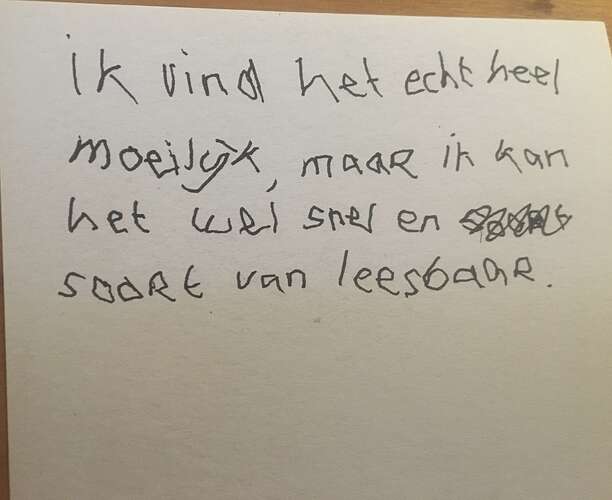 ik vind het echt heel
moeilijk, maar ik kan
het wel snel en
soort van leesbaar.